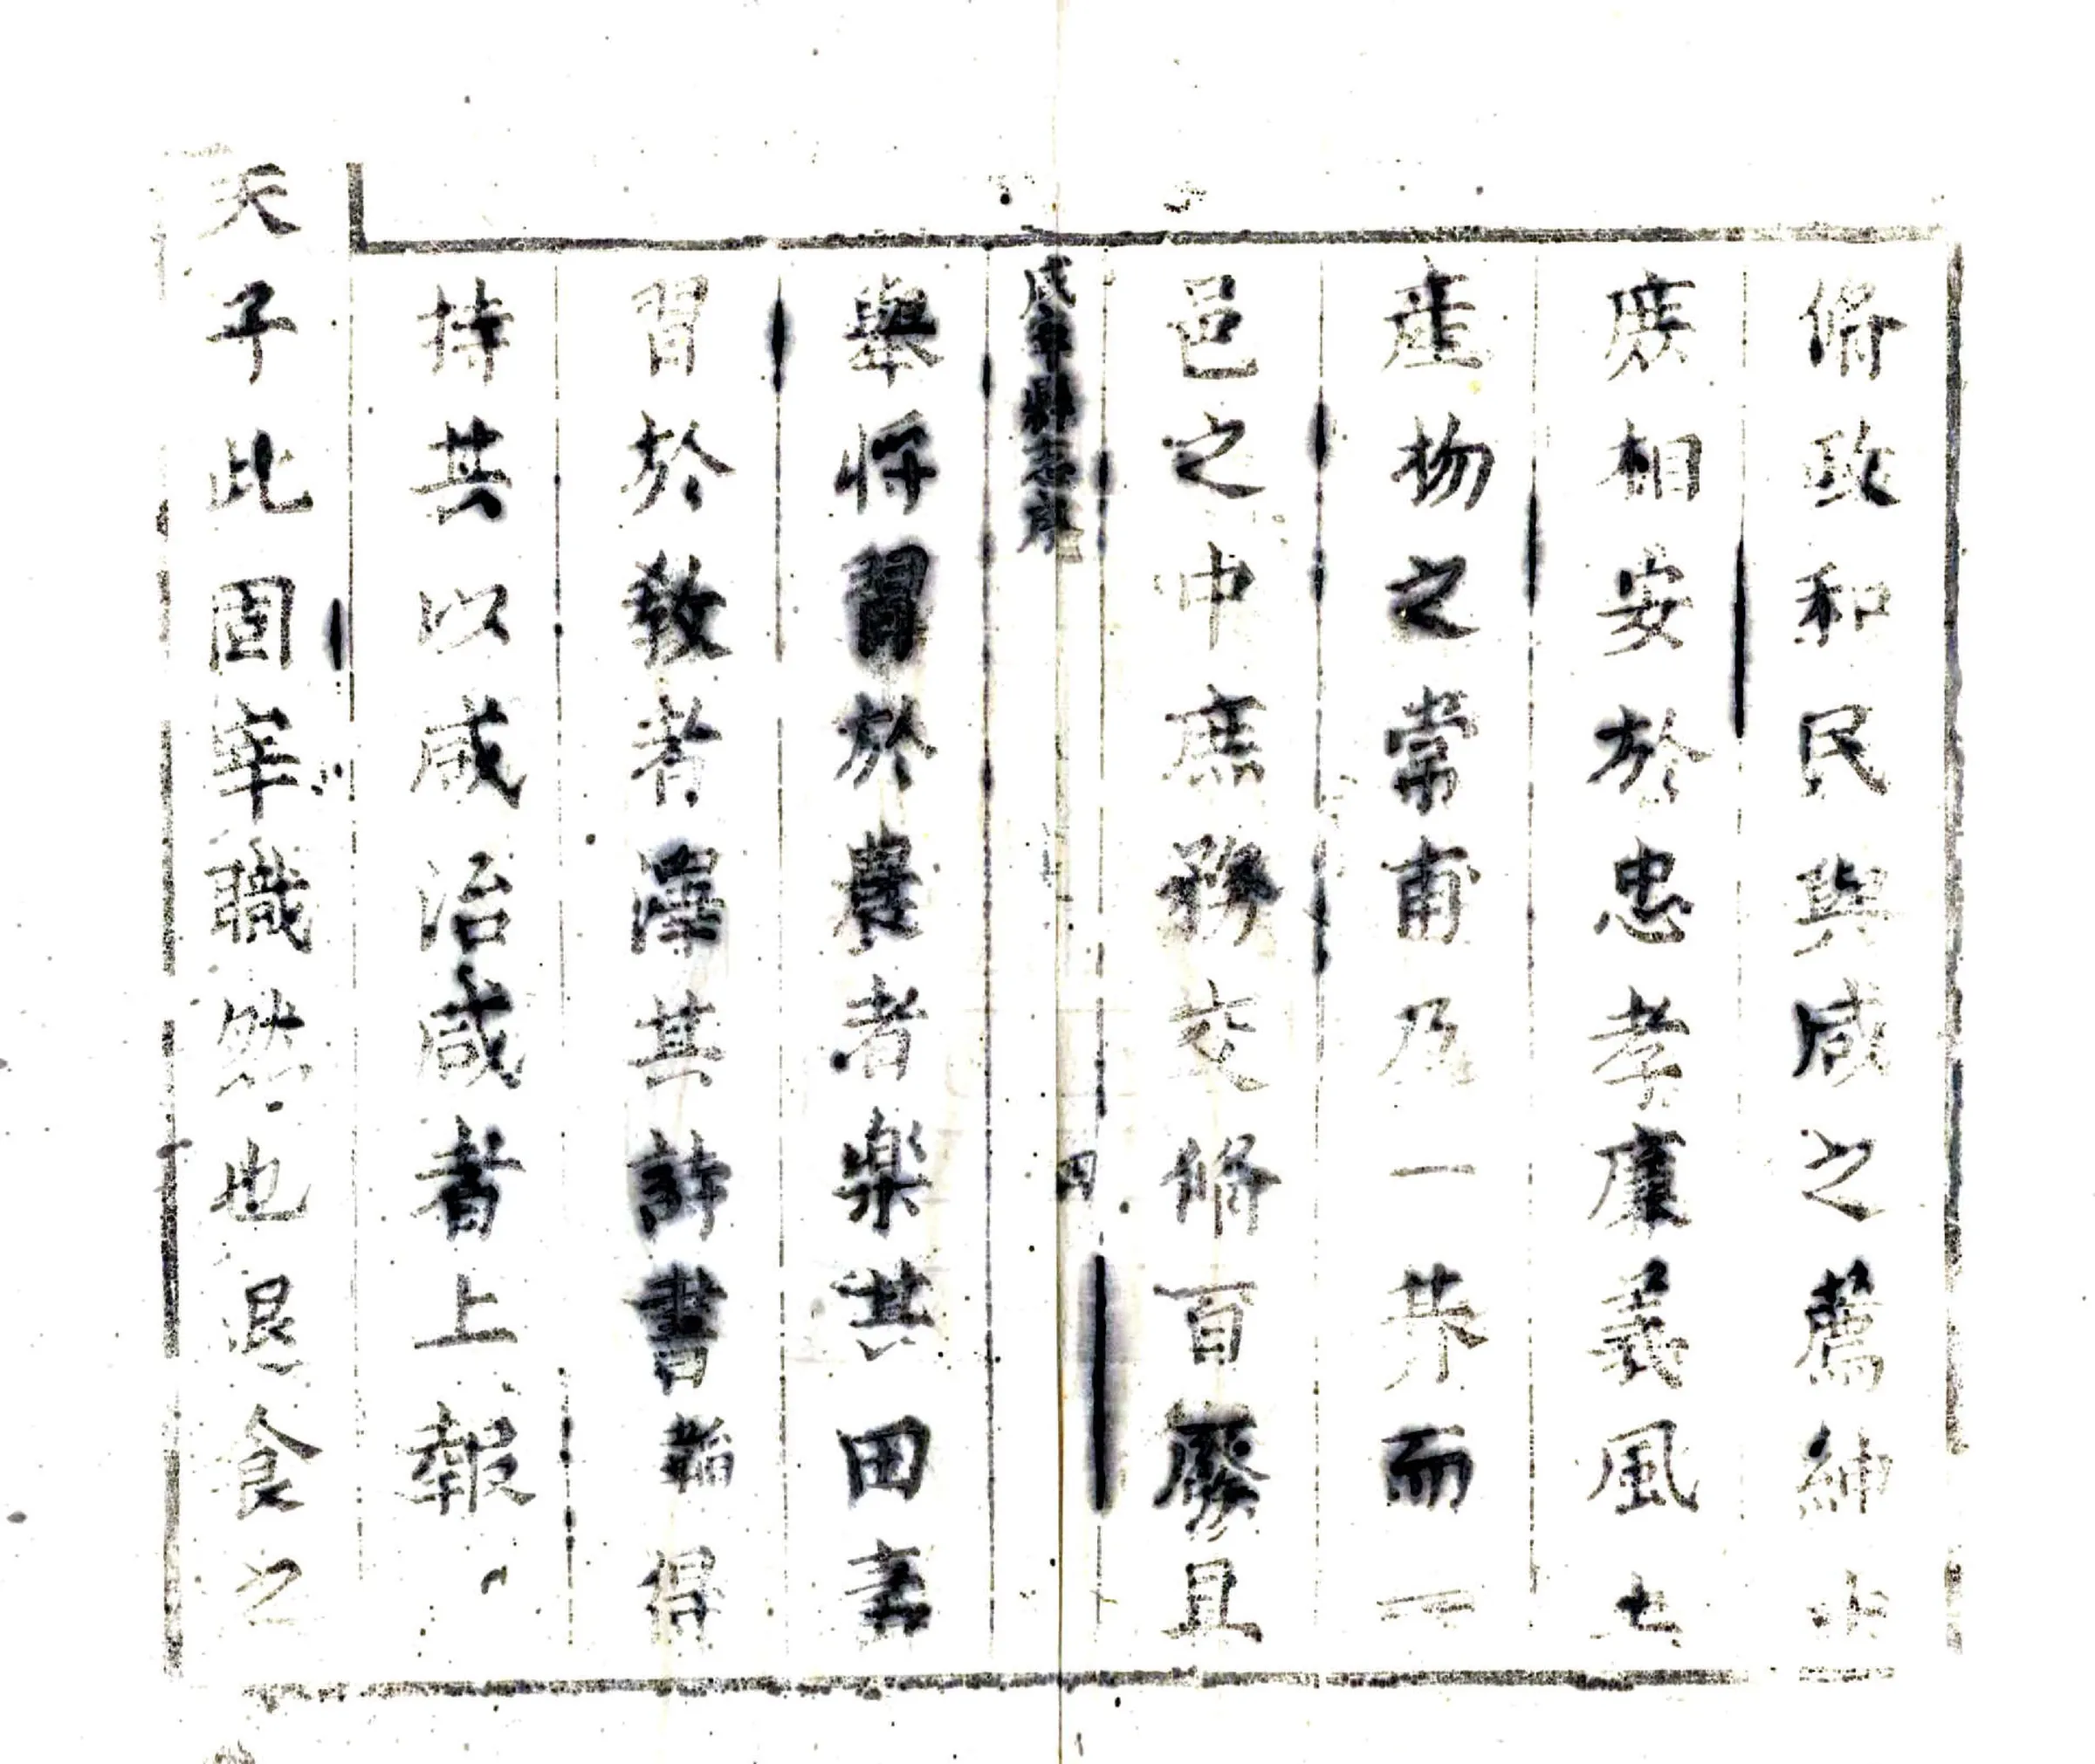 脩政和民與咸之薦紳士
庶相安於忠孝廉義風土
產物之常甫乃一朞而一
邑之中庶務交脩百廢且
咸寧縣志序
四
舉將習於農者樂其田畫
習於教者澤其詩書輪得
持其以咸治咸者上報
天子此固宰職然也退食之